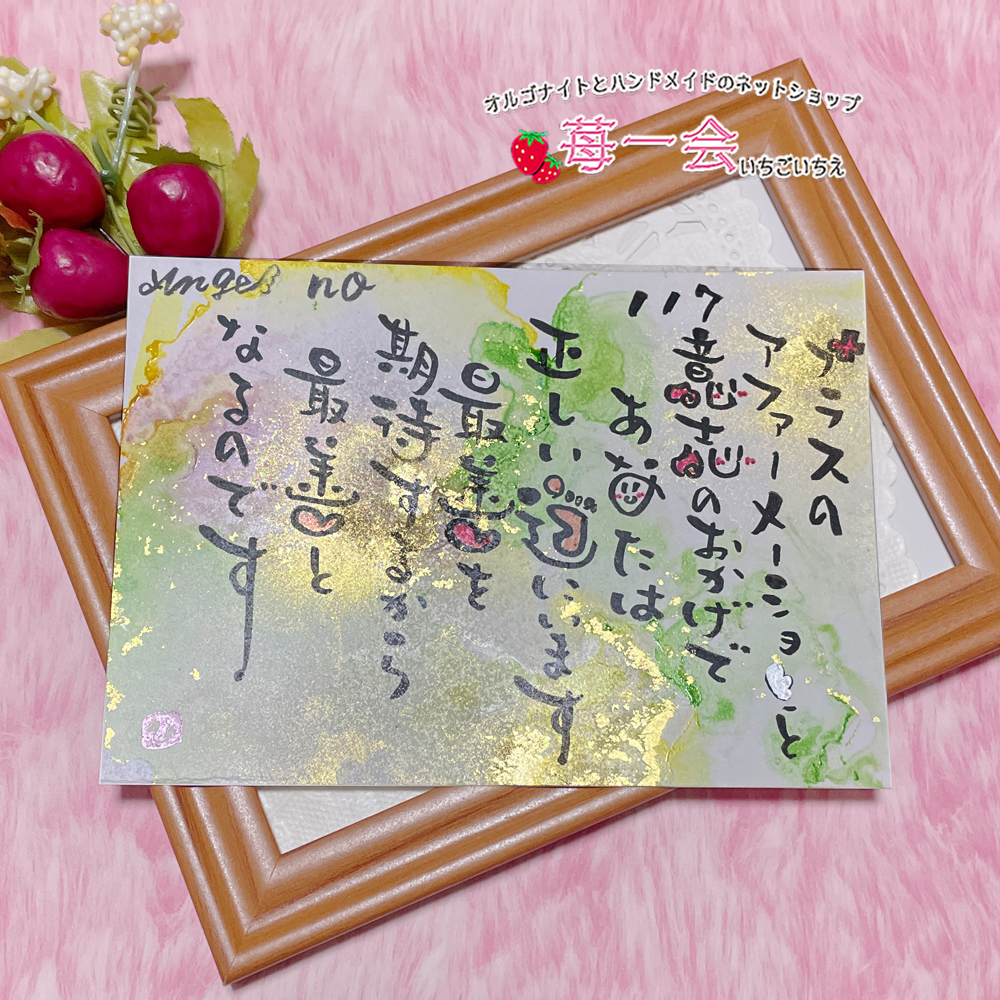 オルゴナイトとハンドメイドのネットショップ
苺一会
いちごいちえ
Angel no 117
プラスの
アファーメーションと
意志のおかげで
あなたは
正しい道にいます
最善を
期待するから
最善と
なるのです